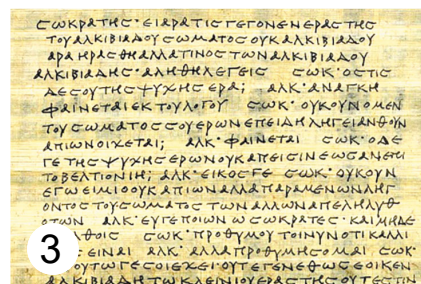 ϹΩΚΡΑΤΗϹ· ΕΙΑΡΑΤΙϹΓΕΓΟΝΕΝΕΡΑϹΤΗϹ
ΤΟΥΑΛΚΙΒΙΑΔΟΥϹΩΜΑΤΟϹΟΥΚΑΛΚΙΒΙΑΔΟΥ
ΑΡΑΗΡΑϹΘΗΑΛΛΑΤΙΝΟϹΤΩΝΑΛΚΙΒΙΑΔΟΥ
ΑΛΚΙΒΙΑΔΗϹ· ΑΛΗΘΗΛΕΓΕΙϹ ϹΩΚ· ΟϹΤΙϹ
ΔΕϹΟΥΤΗϹΨΥΧΗϹΕΡΑ; ΑΛΚ· ΑΝΑΓΚΗ
ΦΑΙΝΕΤΑΙΕΚΤΟΥΛΟΓΟΥ ϹΩΚ· ΟΥΚΟΥΝΟΜΕΝ
ΤΟΥϹΩΜΑΤΟϹϹΟΥΕΡΩΝΕΠΕΙΔΗΛΗΓΕΙΑΝΘΟΥΝ
ΑΠΙΩΝΟΙΧΕΤΑΙ; ΑΛΚ· ΦΑΙΝΕΤΑΙ ϹΩΚ· ΟΔΕ
ΓΕΤΗϹΨΥΧΗϹΕΡΩΝΟΥΚΑΠΕΙϹΙΝΕΩϹΑΝΕΠΙ
ΤΟΒΕΛΤΙΟΝΙΗ; ΑΛΚ· ΕΙΚΟϹΓΕ ϹΩΚ· ΟΥΚΟΥΝ
ΕΓΩΕΙΜΙΟΟΥΚΑΠΙΩΝΑΛΛΑΠΑΡΑΜΕΝΩΝΛΗΓ
ΟΝΤΟϹΤΟΥϹΩΜΑΤΟϹΤΩΝΑΛΛΩΝΑΠΕΛΗΛΥΘ
ΟΤΩΝ ΑΛΚ· ΕΥΓΕΠΟΙΩΝ ΩϹΩΚΡΑΤΕϹ· ΚΑΙΜΗΔΕ
ΛΘΟΙϹ ϹΩΚ· ΠΡΟΘΥΜΟΥΤΟΙΝΥΝΟΤΙΚΑΛΛΙ
ΕΙΝΑΙ ΑΛΚ· ΑΛΛΑΠΡΟΘΥΜΗϹΟΜΑΙ ϹΩΚ·
ΟΥΤΩΓΕϹΟΙΕΧΕΙΟΥΤΕΓΕΝΕΘΩϹΕΟΙΚΕΝ
ΑΛΚΙΒΙΑΔΗΤΩΚΛΕΙΝΙΟΥΕΡΑϹΤΗϹΟΥΤΕϹΤΙΝ
3